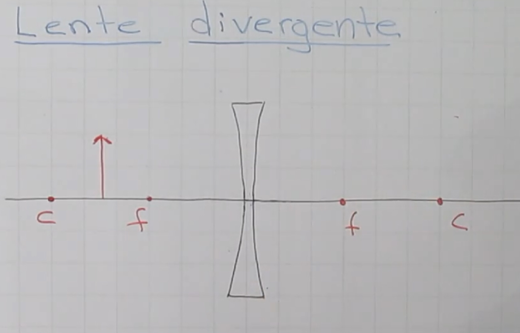 Lente divergente
c f f c